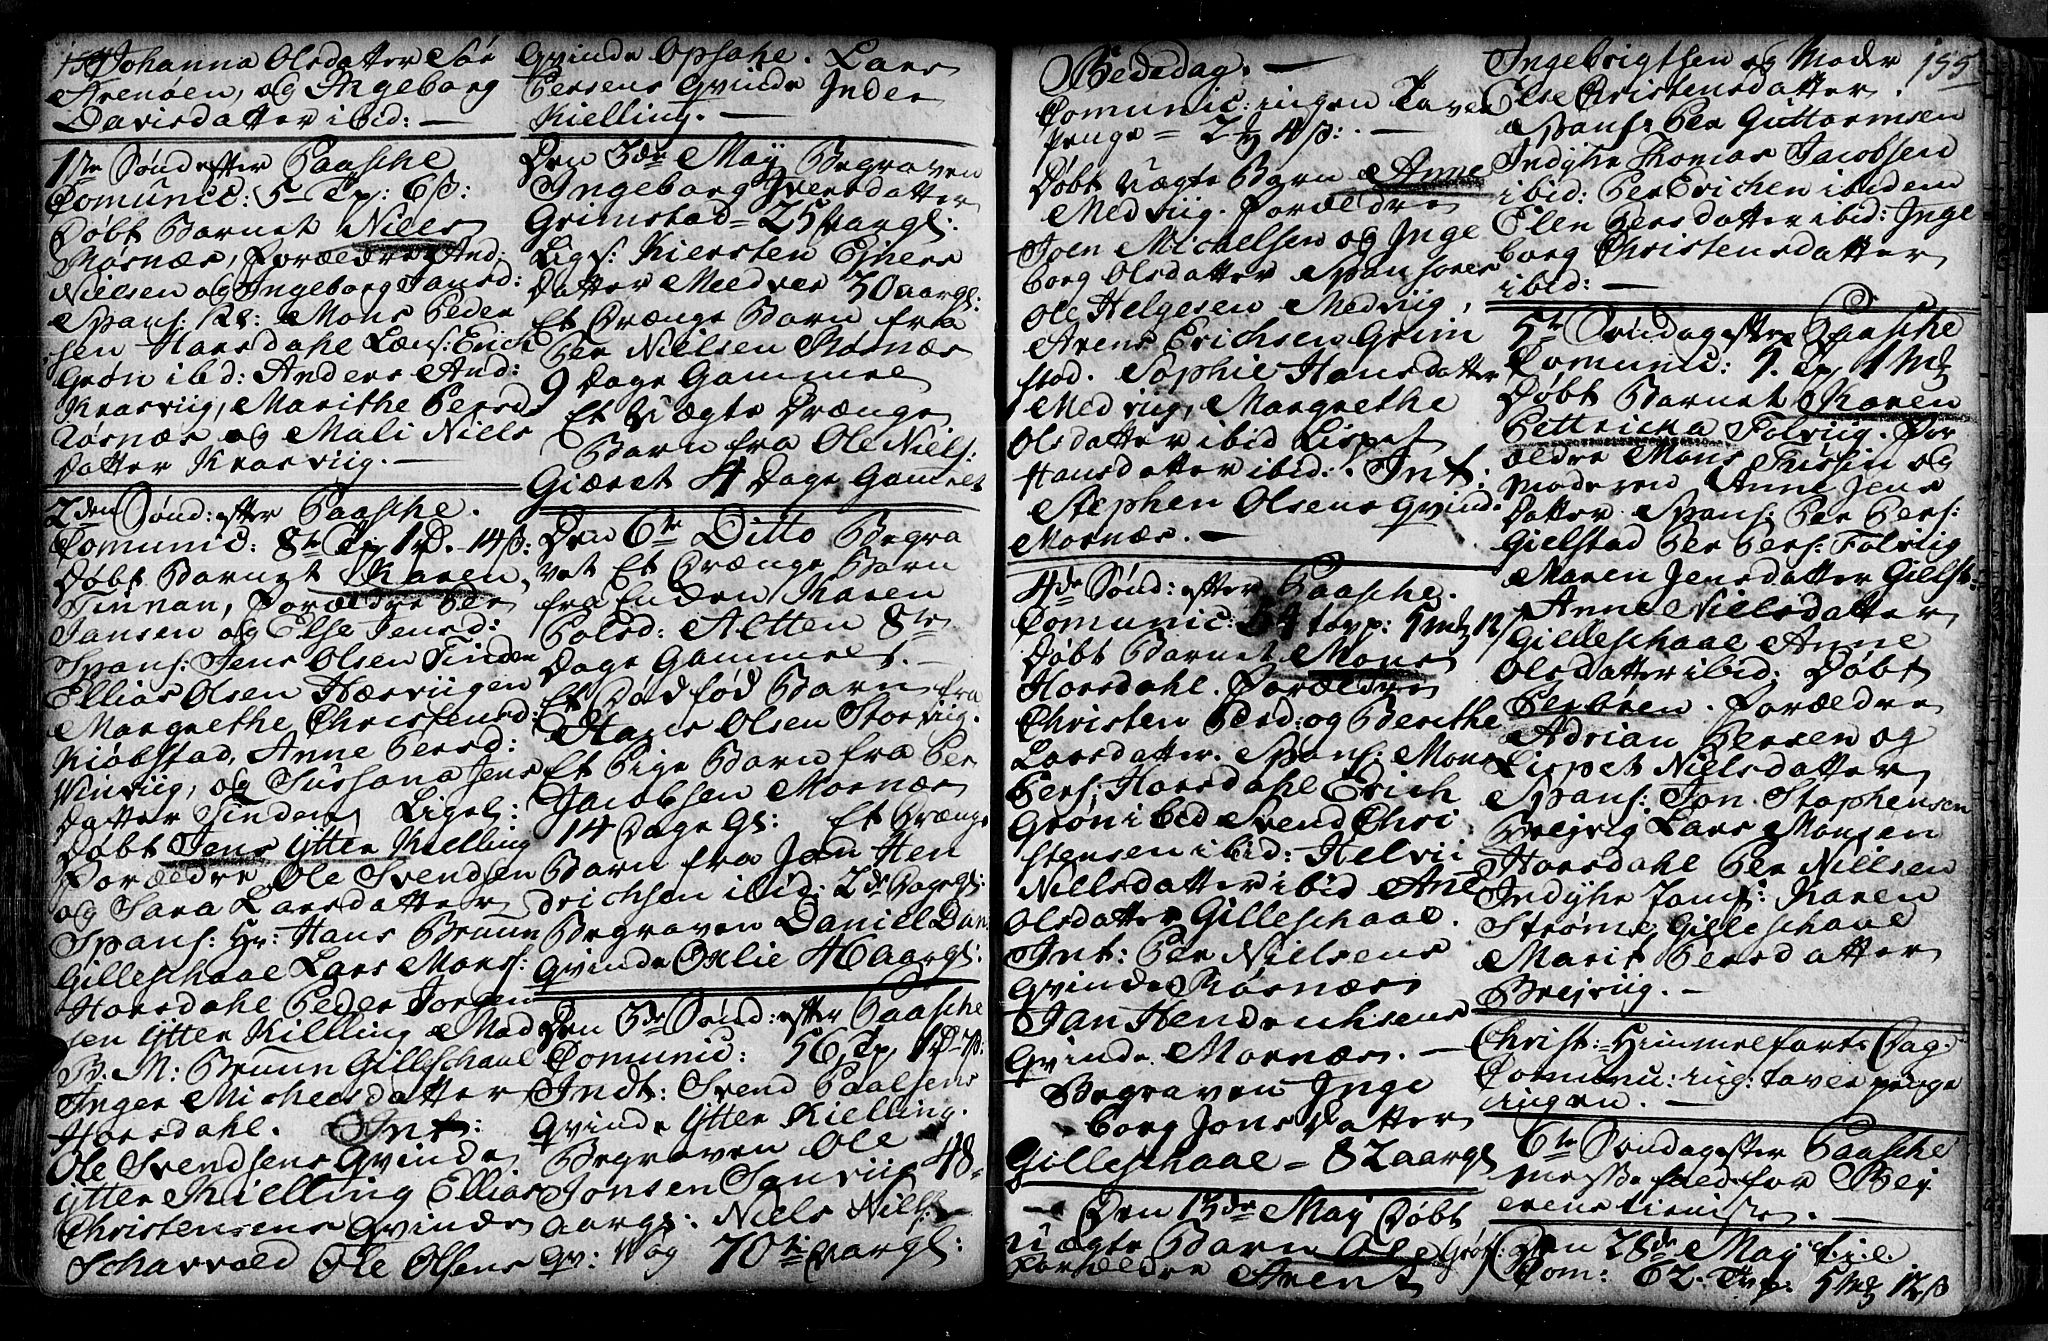 Johanna Olsdatter
Arensen, og Ingeborg
Davisdatter ibid: —
1ste Sønd efter Paasche
Comunic: 5 — Tp: 6ß:
Døbt Barnet Niels
Morsnæs, Forældre And:
Nielsen og Ingeborg Jansd:
Spans: Mons Peder
sen Horsdahl Læns: Erich
Grøn ibid: Anders And:
Kraaviig, Marithe Persd
Røsnæs og Mali Niels
datter Kraaviig. —
2den Sønd: efter Paasche.
Comunic: 8te Tp 1 — 14ß:
Døbt Barnet Karen
Tinnan, Forældre Per
Jansen og Else Jensd:
Spans: Jens Olsen Tinden
Ellias Olsen Hæsviigen
Margrethe Christensd:
Kiøbstad, Anne Persd:
Vinviig, og Sussana Jens
datter Tinden Ligel:
Døbt Jens Ytter Kielling
Forældre Ole Svendsen
og Sara Larsdatter
Spans: Hr: Hans Brunn
Gilleschaal Lars Mons:
Horsdahl Peder Jorgen
sen Ytter Killling Mad
B. M: Brunn Gilleschaal
Inger Michelsdatter
Horsdahl. Int:
Ole Svendsens Qvinde
Ytter Kielling Ellias
Christensens Qvinde
Scharvold Ole Olsens
Qvinde Opsahl. Lars
Persens Qvinde Inder
Kielling. —
Den 3de May Begraven
Ingeborg Iversdatter
Grimstad = 25 Aargl:
Ligs: Kiersten Ejners
datter Medvee 50 aargl:
Et Drænge Barn fra
Per Nielsen Røsnæs
9 Dage Gammel
Et Uægte Drænge
Barn fra Ole Niels:
Giæret 4 Dage Gamelt
Den 6te Ditto Begra
vet Et Drænge Barn
fra Enden Karen
Polsd: Altten 8te
Dage Gammelt. —
Et Død fød Barn fra
Hans Olsen Storviig.
Et Pige Barn fra Per
Jacobsen Morsnæs
14 Dage Gl: Et Drænge
Barn fra Jon Hen
drichsen ibid. 2de Dage gl:
Begraven Daniel Dan
Qvinde Oxlie 46 aargl:
Den 3de Sønd: efter Paasche
Comunic: 56, Tp,
Indt: Svend Paalsens
Qvinde Ytter Kielling.
Begraven Ole
Jonsen Sanviig 48
aargl: Niels Niels
Qv: Vog 70ti Aargl:
Bededag. —
Comunic: ingen Tavle
penge = 2 4ß: —
Døbt Uægte Barn Anne
Medviig. Forældre
Joen Michelsen og Inge
borg Olsdatter Spansorer
Ole Helgesen Medviig,
Arens Erichsen Grim
stad. Sophie Hansdatter
Medviig, Margrethe
Olsdatter ibid Lispet
Hansdatter ibid: Int:
Stephen Olsens Qvinde
Morsnæs. —
4de Sønd: efter Paasche.
Comunic: 54 tavp: 5 12
Døbt Barnet Mons
Horsdahl. Forældre
Christen Persd: og Berethe
Larsdatter. Spans: Mons
Pers: Horsdahl Erich
Grøn ibid Svend Chri
stensen ibid: Helvii
Nielsdatter ibid Ane
Olsdatter Gilleschaal.
Int: Per Nielsens
Qvinde Røsnæs
Jan Hendrichsens
Qvinde Morsnæs. —
Begraven Inge
borg Jonsdatter
Gilleschaal = 82 aargl
Den 13de May Døbt
Uægte Barn Ole
Forældre Arent
155
Ingebrigthsen og Modr
Else Christensdatter.
Spans: Per Guttormsen
Indyhr Thomas Jacobsen
ibid: Per Erichen ibidem
Elen Persdatter ibid: Inge
borg Christensdatter
ibid: —
5te Søndag efter Paasche
Comunic: 9. Tp, 1
Døbt Barnet Karen
Pettricka Folviig. For
ældre Mons Tussin og
Moderen Anne Jens
datter Spans: Per Pers:
Gielstad Per Pers: Folviig
Maren Jensdatter Gillst:
Anne Nielsdatter
Gilleschaal Anne
Olsdatter ibid: Døbt
Perbren. Forældre
Adrian Persen og
Lispet Nielsdatter
Spans: Jon Stephensen
Brejvig Lars Monsen
Horsdahl Per Nielsen
Indyhr Jomf: Karen
Strøm Gilleschaal
Marit Persdatter
Brejviig. —
Christ: Himmelfarts Dag
Comunic: ing: tavle penge
ingen. —
6te Søndag efter Paasche
Messe fald for Bej
erens tieniste. —
Den 28de May
Com: 62. Tvp: 5 12ß